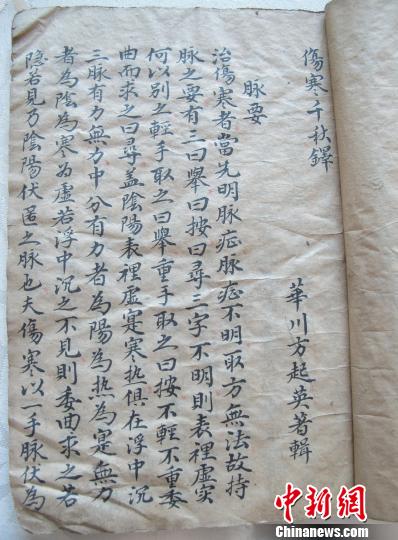 傷寒千秋鐸
華川方起英著輯
脉要
治傷寒者當先明脉症脉症不明取方無法故持
脉之要有三曰舉曰按曰尋三字不明則表裡虛实
何以別之輕手取之曰舉重手取之曰按不輕不重委
曲而求之曰尋盖陰陽表裡虛寔寒热俱在浮中沉
三脉有力無力中分有力者為陽為热為寔無力
者為陰為寒為虛若浮中沉之不見則委曲求之若
隐若見乃陰陽伏匿之脉也夫傷寒以一手脉伏為
中新網
www.chinanews.com